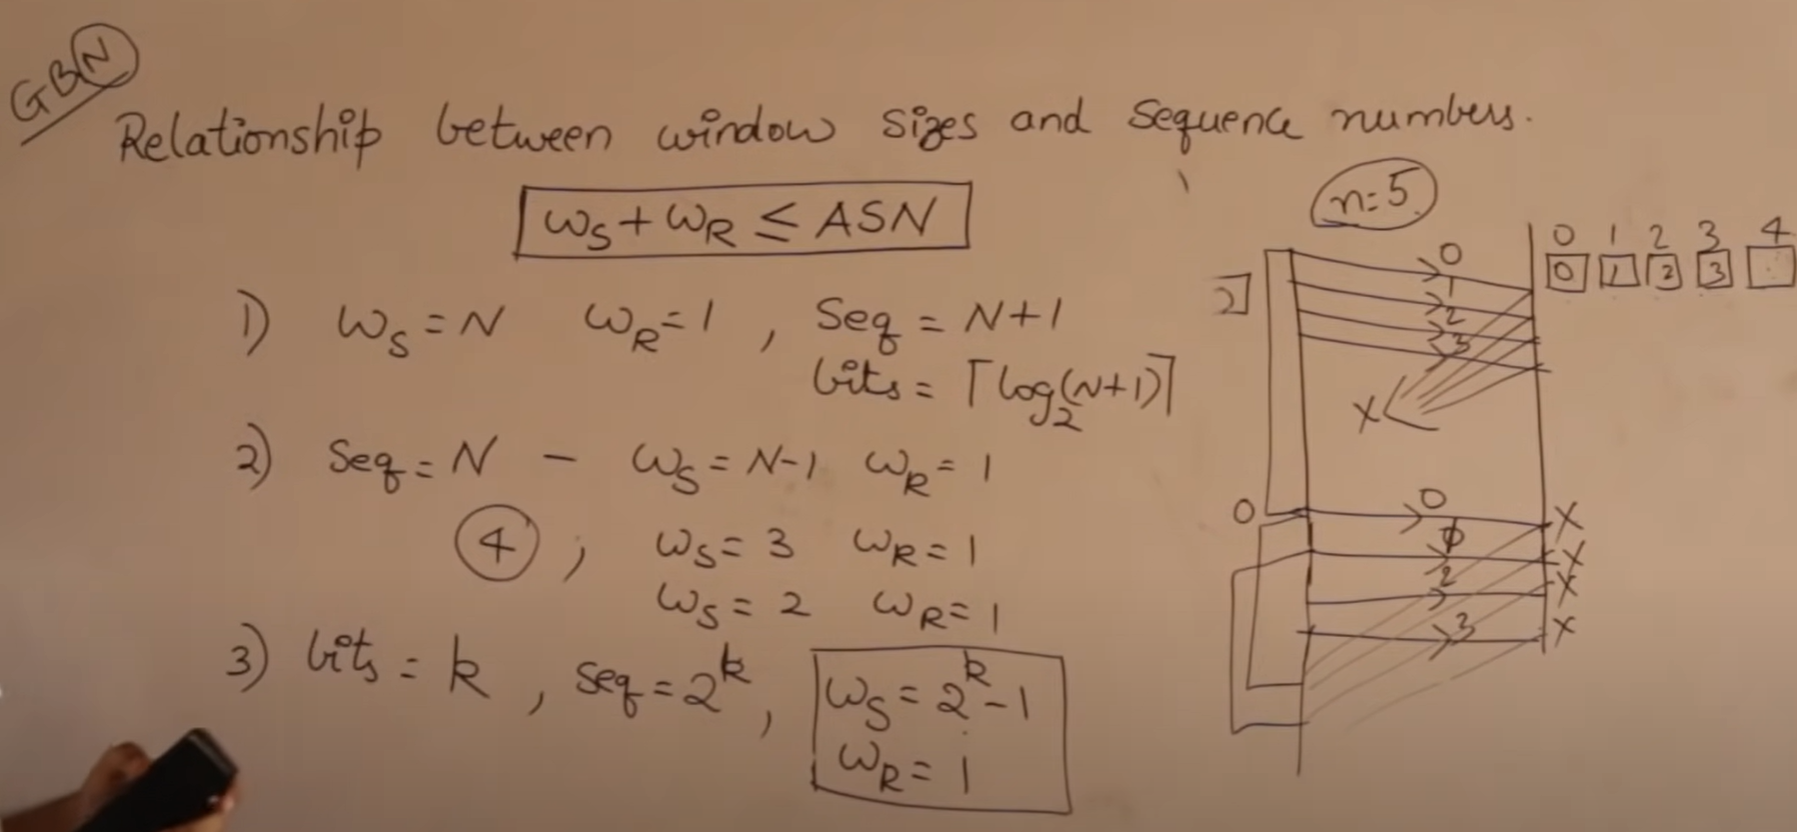 GBN
Relationship between window sizes and sequence numbers.
WS + WR ≤ ASN
1) WS = N WR = 1 , Seq = N+1
bits = ⌈log2(N+1)⌉
2) Seq = N - WS = N-1 WR = 1
4 , WS = 3 WR = 1
WS = 2 WR = 1
3) bits = k , seq = 2^k , WS = 2^k - 1
WR = 1
n = 5
0 1 2 3 4
0 1 2 3
0
1
2
3
X
0 0 X
X
2 X
3 X